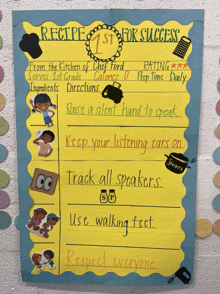 RECIPE 1ST FOR SUCCESS
From the Kitchen of Chef Ford RATING ★★★
Serves 1st Grade Calories: 0 Prep Time: Daily
Ingredients Directions
Raise a silent hand to speak.
Keep your listening ears on.
Track all speakers.
Use walking feet.
Respect everyone.